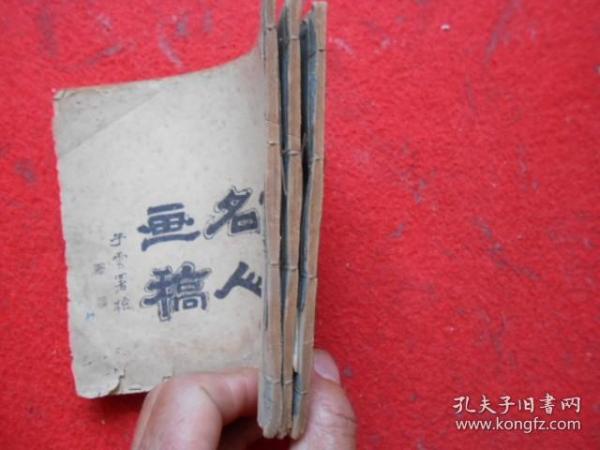 名人
画稿
于雪署检
孔夫子旧书网
www.kongfz.com